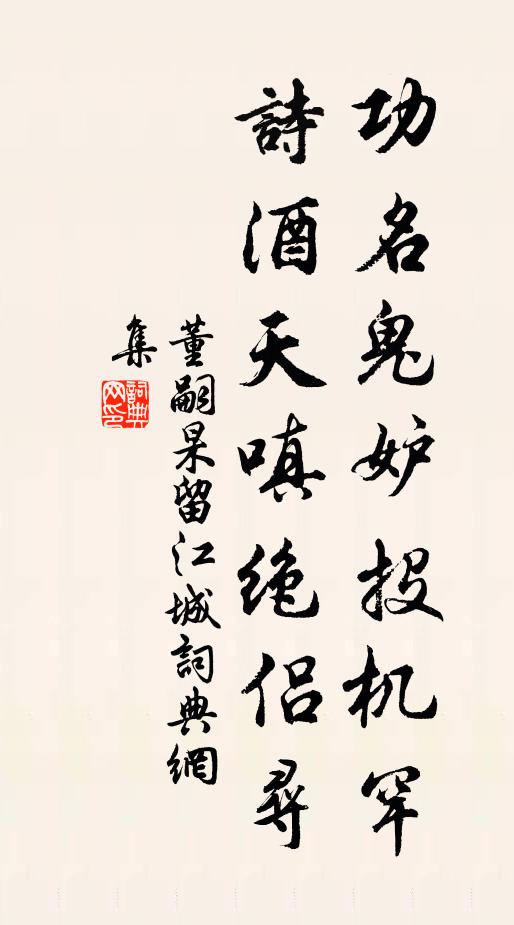 功名鬼妒投机罕
詩酒天嗔绝侣尋
董嗣杲留江城詞典網
集
詞典网印